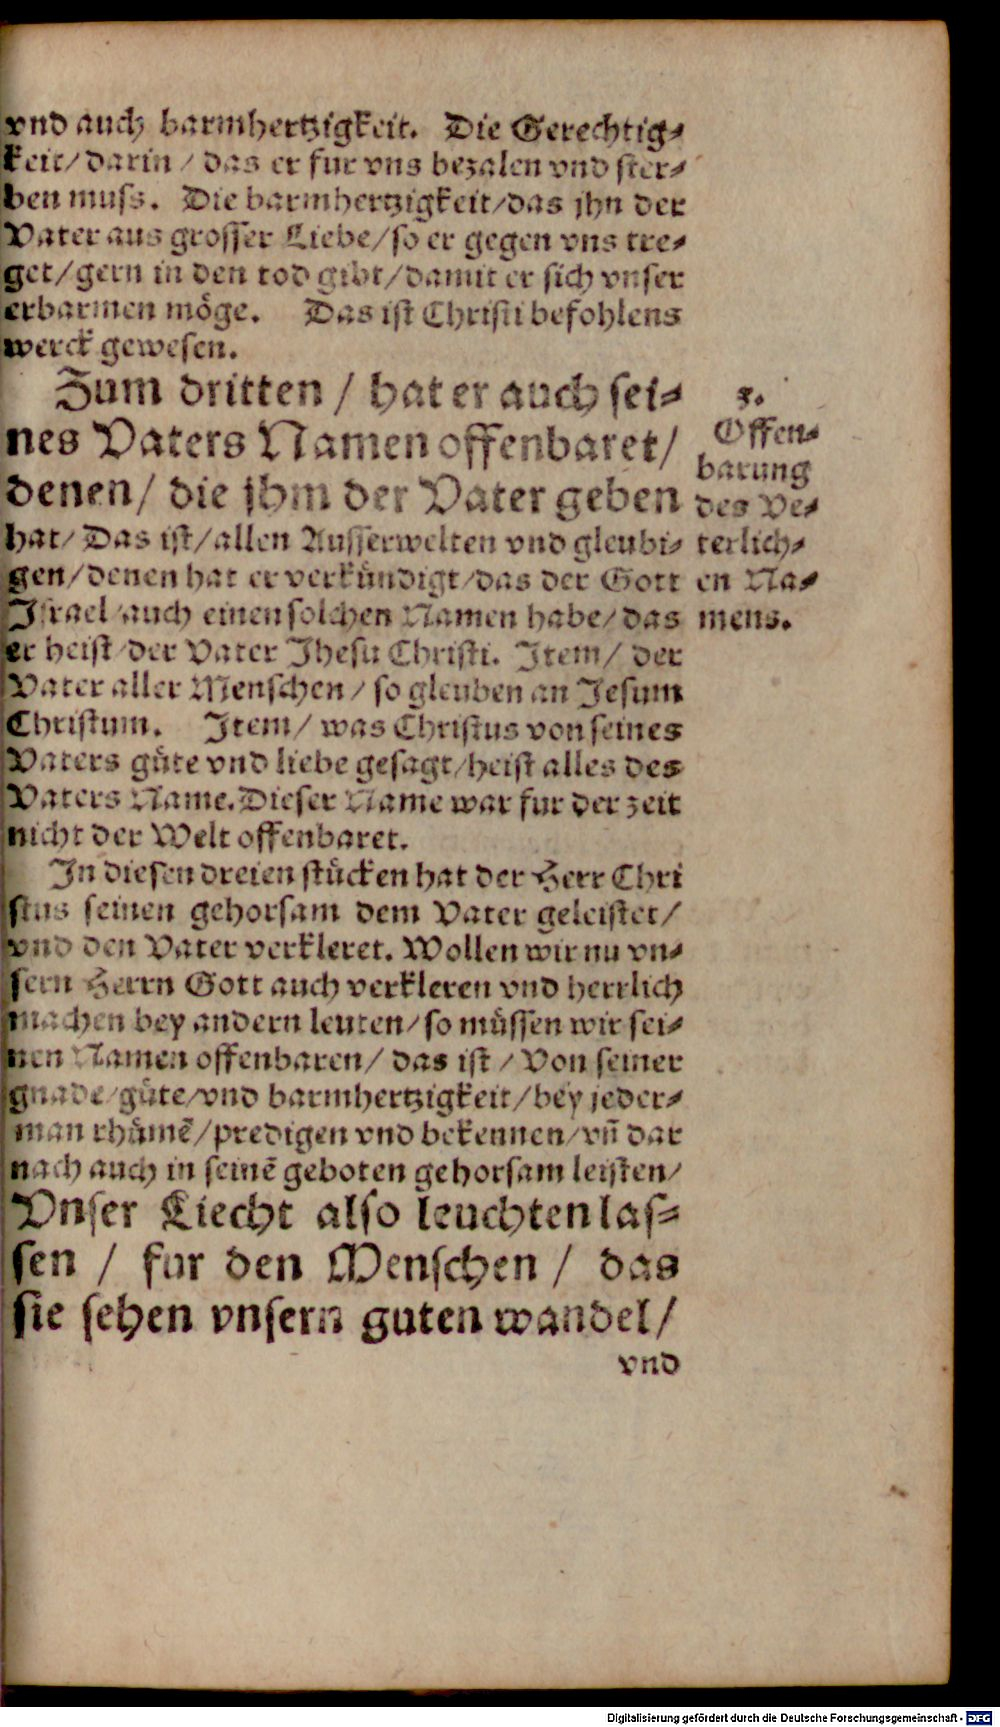 vnd auch barmhertzigkeit. Die Gerechtig⸗
keit/darin / das er fur vns bezalen vnd ster⸗
ben muss. Die barmhertzigkeit/das jhn der
Vater aus grosser Liebe/so er gegen vns tre⸗
get/gern in den tod gibt/damit er sich vnser
erbarmen möge. Das ist Christi befohlens
werck gewesen.
Zum dritten / hat er auch sei⸗
nes Vaters Namen offenbaret/
denen/ die jhm der Vater geben
hat/ Das ist/allen Ausserwelten vnd gleubi⸗
gen/denen hat er verkündigt/das der Gott
Israel/auch einen solchen Namen habe/das
er heist/der Vater Jhesu Christi. Item/ der
Vater aller Menschen/ so gleuben an Jesum
Christum. Item/ was Christus von seines
Vaters güte vnd liebe gesagt/heist alles des
Vaters Name. Dieser Name war fur der zeit
nicht der Welt offenbaret.
3.
Offen⸗
barung
des Ve⸗
terlich⸗
en Na⸗
mens.
In diesen dreien stücken hat der Herr Chri
stus seinen gehorsam dem Vater geleistet/
vnd den Vater verkleret. Wollen wir nu vn⸗
sern Herrn Gott auch verkleren vnd herrlich
machen bey andern leuten/so müssen wir sei⸗
nen Namen offenbaren/ das ist / Von seiner
gnade/güte/vnd barmhertzigkeit/bey jeder⸗
man rhümē/predigen vnd bekennen/vñ dar
nach auch in seinē geboten gehorsam leisten/
Vnser Liecht also leuchten las⸗
sen / fur den Menschen / das
sie sehen vnsern guten wandel/
vnd
Digitalisierung gefördert durch die Deutsche Forschungsgemeinschaft - DFG